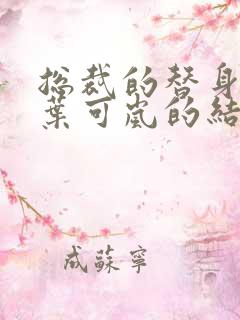 总裁的替身
葉可嵐的結
成蘇寧